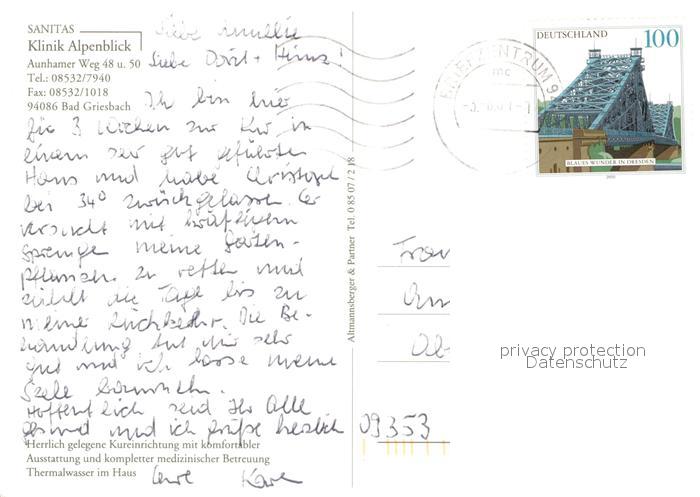 SANITAS
Klinik Alpenblick
Aunhamer Weg 48 u. 50
Tel.: 08532/7940
Fax: 08532/1018
94086 Bad Griesbach
Liebe Annelie
Liebe Dorit + Heinz!
Ich bin hier
für 3 Wochen zur Kur in
einem sehr gut geführten
Haus und habe Christoph
bei 34° zurückgelassen. Er
versucht mit kräftigem
Sprengen meine Garten-
pflanzen zu retten und
zählt die Tage bis zu
meiner Rückkehr. Die Be-
handlung tut mir sehr
gut und ich lasse meine
Seele baumeln.
Hoffentlich seid Ihr alle
gesund und ich grüße herzlich
Eure
Herrlich gelegene Kureinrichtung mit komfortabler
Ausstattung und kompletter medizinischer Betreuung
Thermalwasser im Haus
Altmannsberger & Partner Tel. 0 85 07 / 2 18
BRIEFZENTRUM 9
mc
DEUTSCHLAND 100
BLAUES WUNDER IN DRESDEN
2000
Frau
09353
privacy protection
Datenschutz